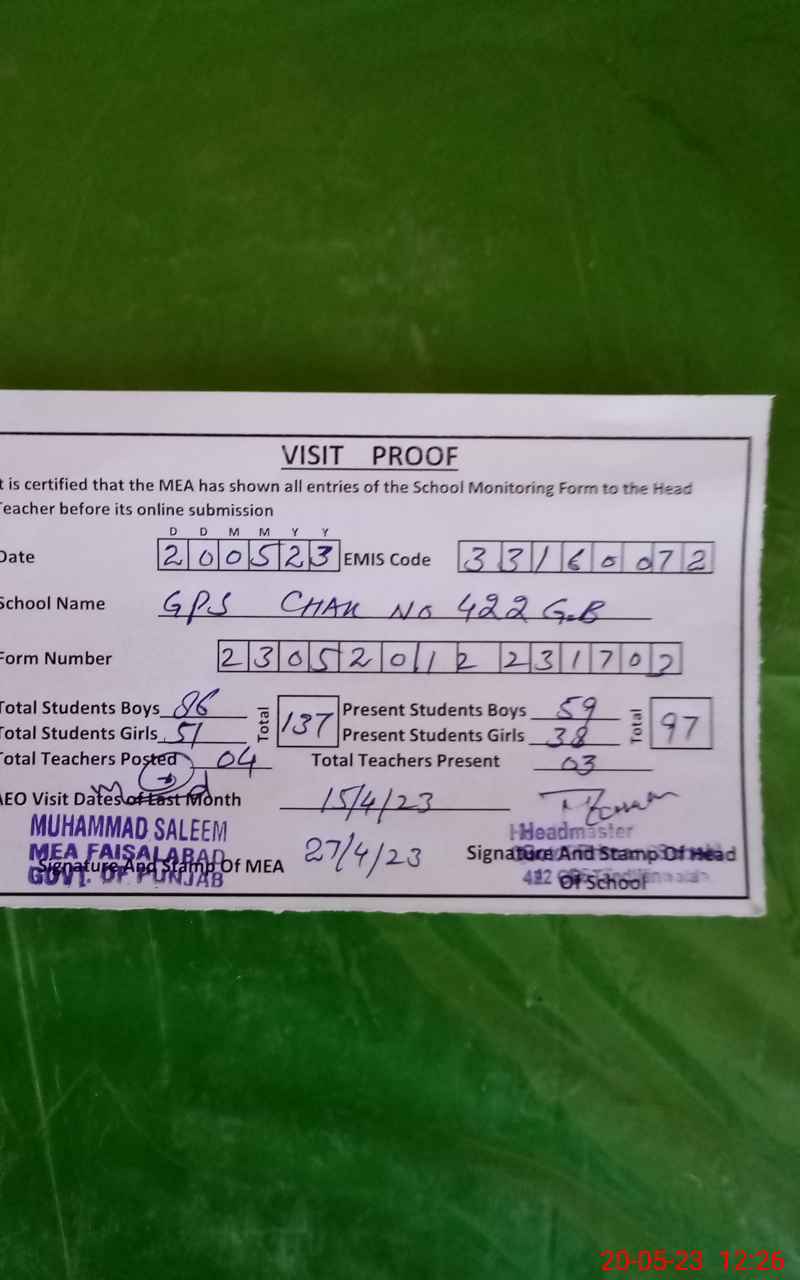 VISIT PROOF
t is certified that the MEA has shown all entries of the School Monitoring Form to the Head
Teacher before its online submission
D D M M Y Y
Date 200523 EMIS Code 33160072
School Name GPS CHAK NO 422 GB
Form Number 23052012 231702
Total Students Boys 86 Total 137 Present Students Boys 59 Total 97
Total Students Girls 51 Present Students Girls 38
Total Teachers Posted 04 Total Teachers Present 03
AEO Visit Dates of Last Month 15/4/23
MUHAMMAD SALEEM
MEA FAISALABAD
GOVT. OF PUNJAB
Signature And Stamp Of MEA 27/4/23
Headmaster
Signature And Stamp Of Head
Of School
422
20-05-23 12:26